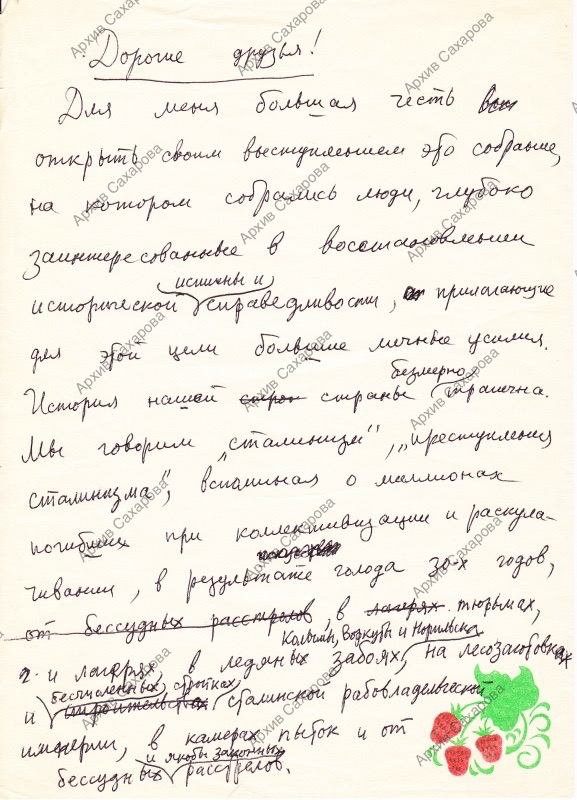 Дорогие друзья!
Для меня большая честь
открыть своим выступлением это собрание,
на котором собрались люди, глубоко
заинтересованные в восстановлении
истины и
исторической справедливости, прилагающие
для этой цели большие личные усилия.
безмерно
История нашей строн страны трагична.
Мы говорим „сталинизм", „преступления
сталинизма", вспоминая о миллионах
погибших при коллективизации и раскула-
чивании, в результате голода 30-х годов,
от бессудных расстрелов, в лагерях тюрьмах,
Колымы, Воркуты и Норильска
2. и лагерях в ледяных забоях, на лесозаготовках
бесчисленных стройках,
и строительствах сталинской рабовладельческой
империи, в камерах пыток и от
и якобы законных
бессудных расстрелов.
Архив Сахарова